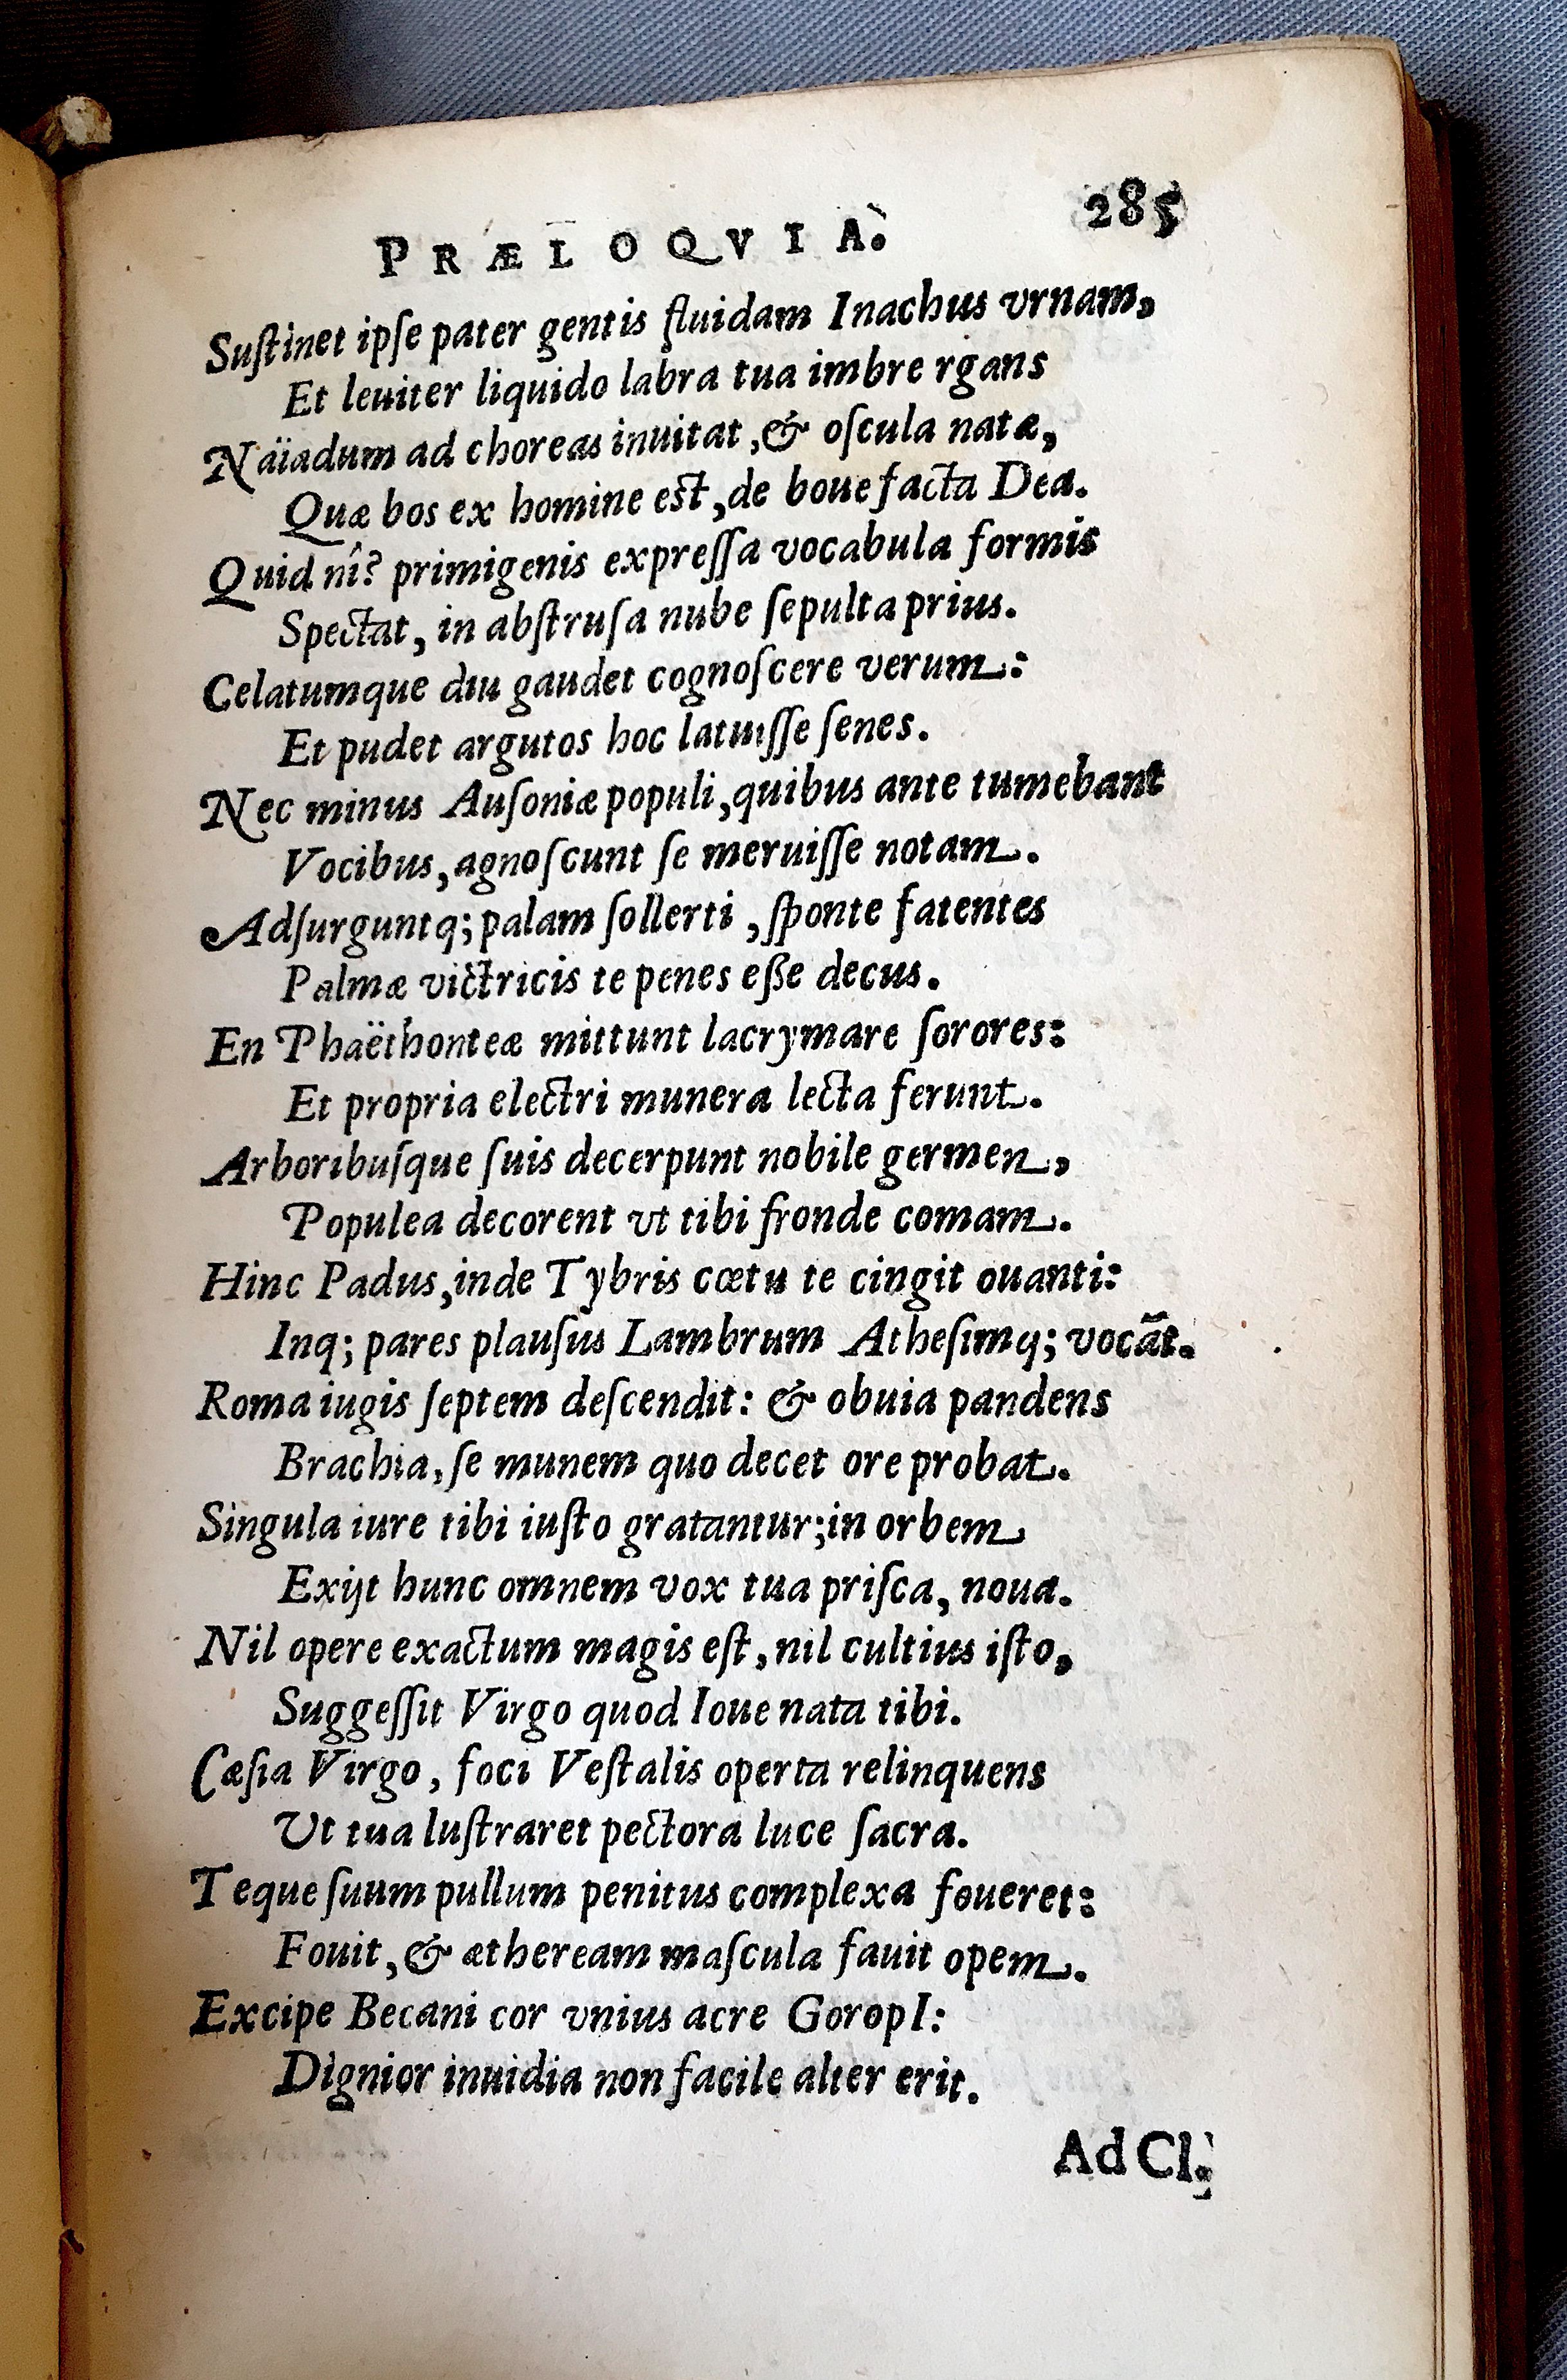 PRÆLOQVIA. 285
Suſtinet ipſe pater gentis fluidam Inachus vrnam,
Et leuiter liquido labra tua imbre rgans
Näiadum ad choreas inuitat, & oſcula natæ,
Quæ bos ex homine eſt, de boue facta Dea.
Quid nî? primigenis expreſſa vocabula formis
Spectat, in abſtruſa nube ſepulta prius.
Celatumque diu gaudet cognoſcere verum:
Et pudet argutos hoc latuiſſe ſenes.
Nec minus Auſoniæ populi, quibus ante tumebant
Vocibus, agnoſcunt ſe meruiſſe notam.
Adſurguntq; palam ſollerti, ſponte fatentes
Palmæ victricis te penes eße decus.
En Phaëthonteæ mittunt lacrymare ſorores:
Et propria electri munera lecta ferunt.
Arboribuſque ſuis decerpunt nobile germen,
Populea decorent vt tibi fronde comam.
Hinc Padus, inde Tybris cœtu te cingit ouanti:
Inq; pares plauſus Lambrum Atheſimq; vocãt.
Roma iugis ſeptem deſcendit: & obuia pandens
Brachia, ſe munem quo decet ore probat.
Singula iure tibi iuſto gratantur; in orbem
Exijt hunc omnem vox tua priſca, noua.
Nil opere exactum magis eſt, nil cultius iſto,
Suggeſſit Virgo quod Ioue nata tibi.
Cæſia Virgo, foci Veſtalis operta relinquens
Ut tua luſtraret pectora luce ſacra.
Teque ſuum pullum penitus complexa foueret:
Fouit, & ætheream maſcula fauit opem.
Excipe Becani cor vnius acre GoropI:
Dignior inuidia non facile alter erit.
Ad Cl.